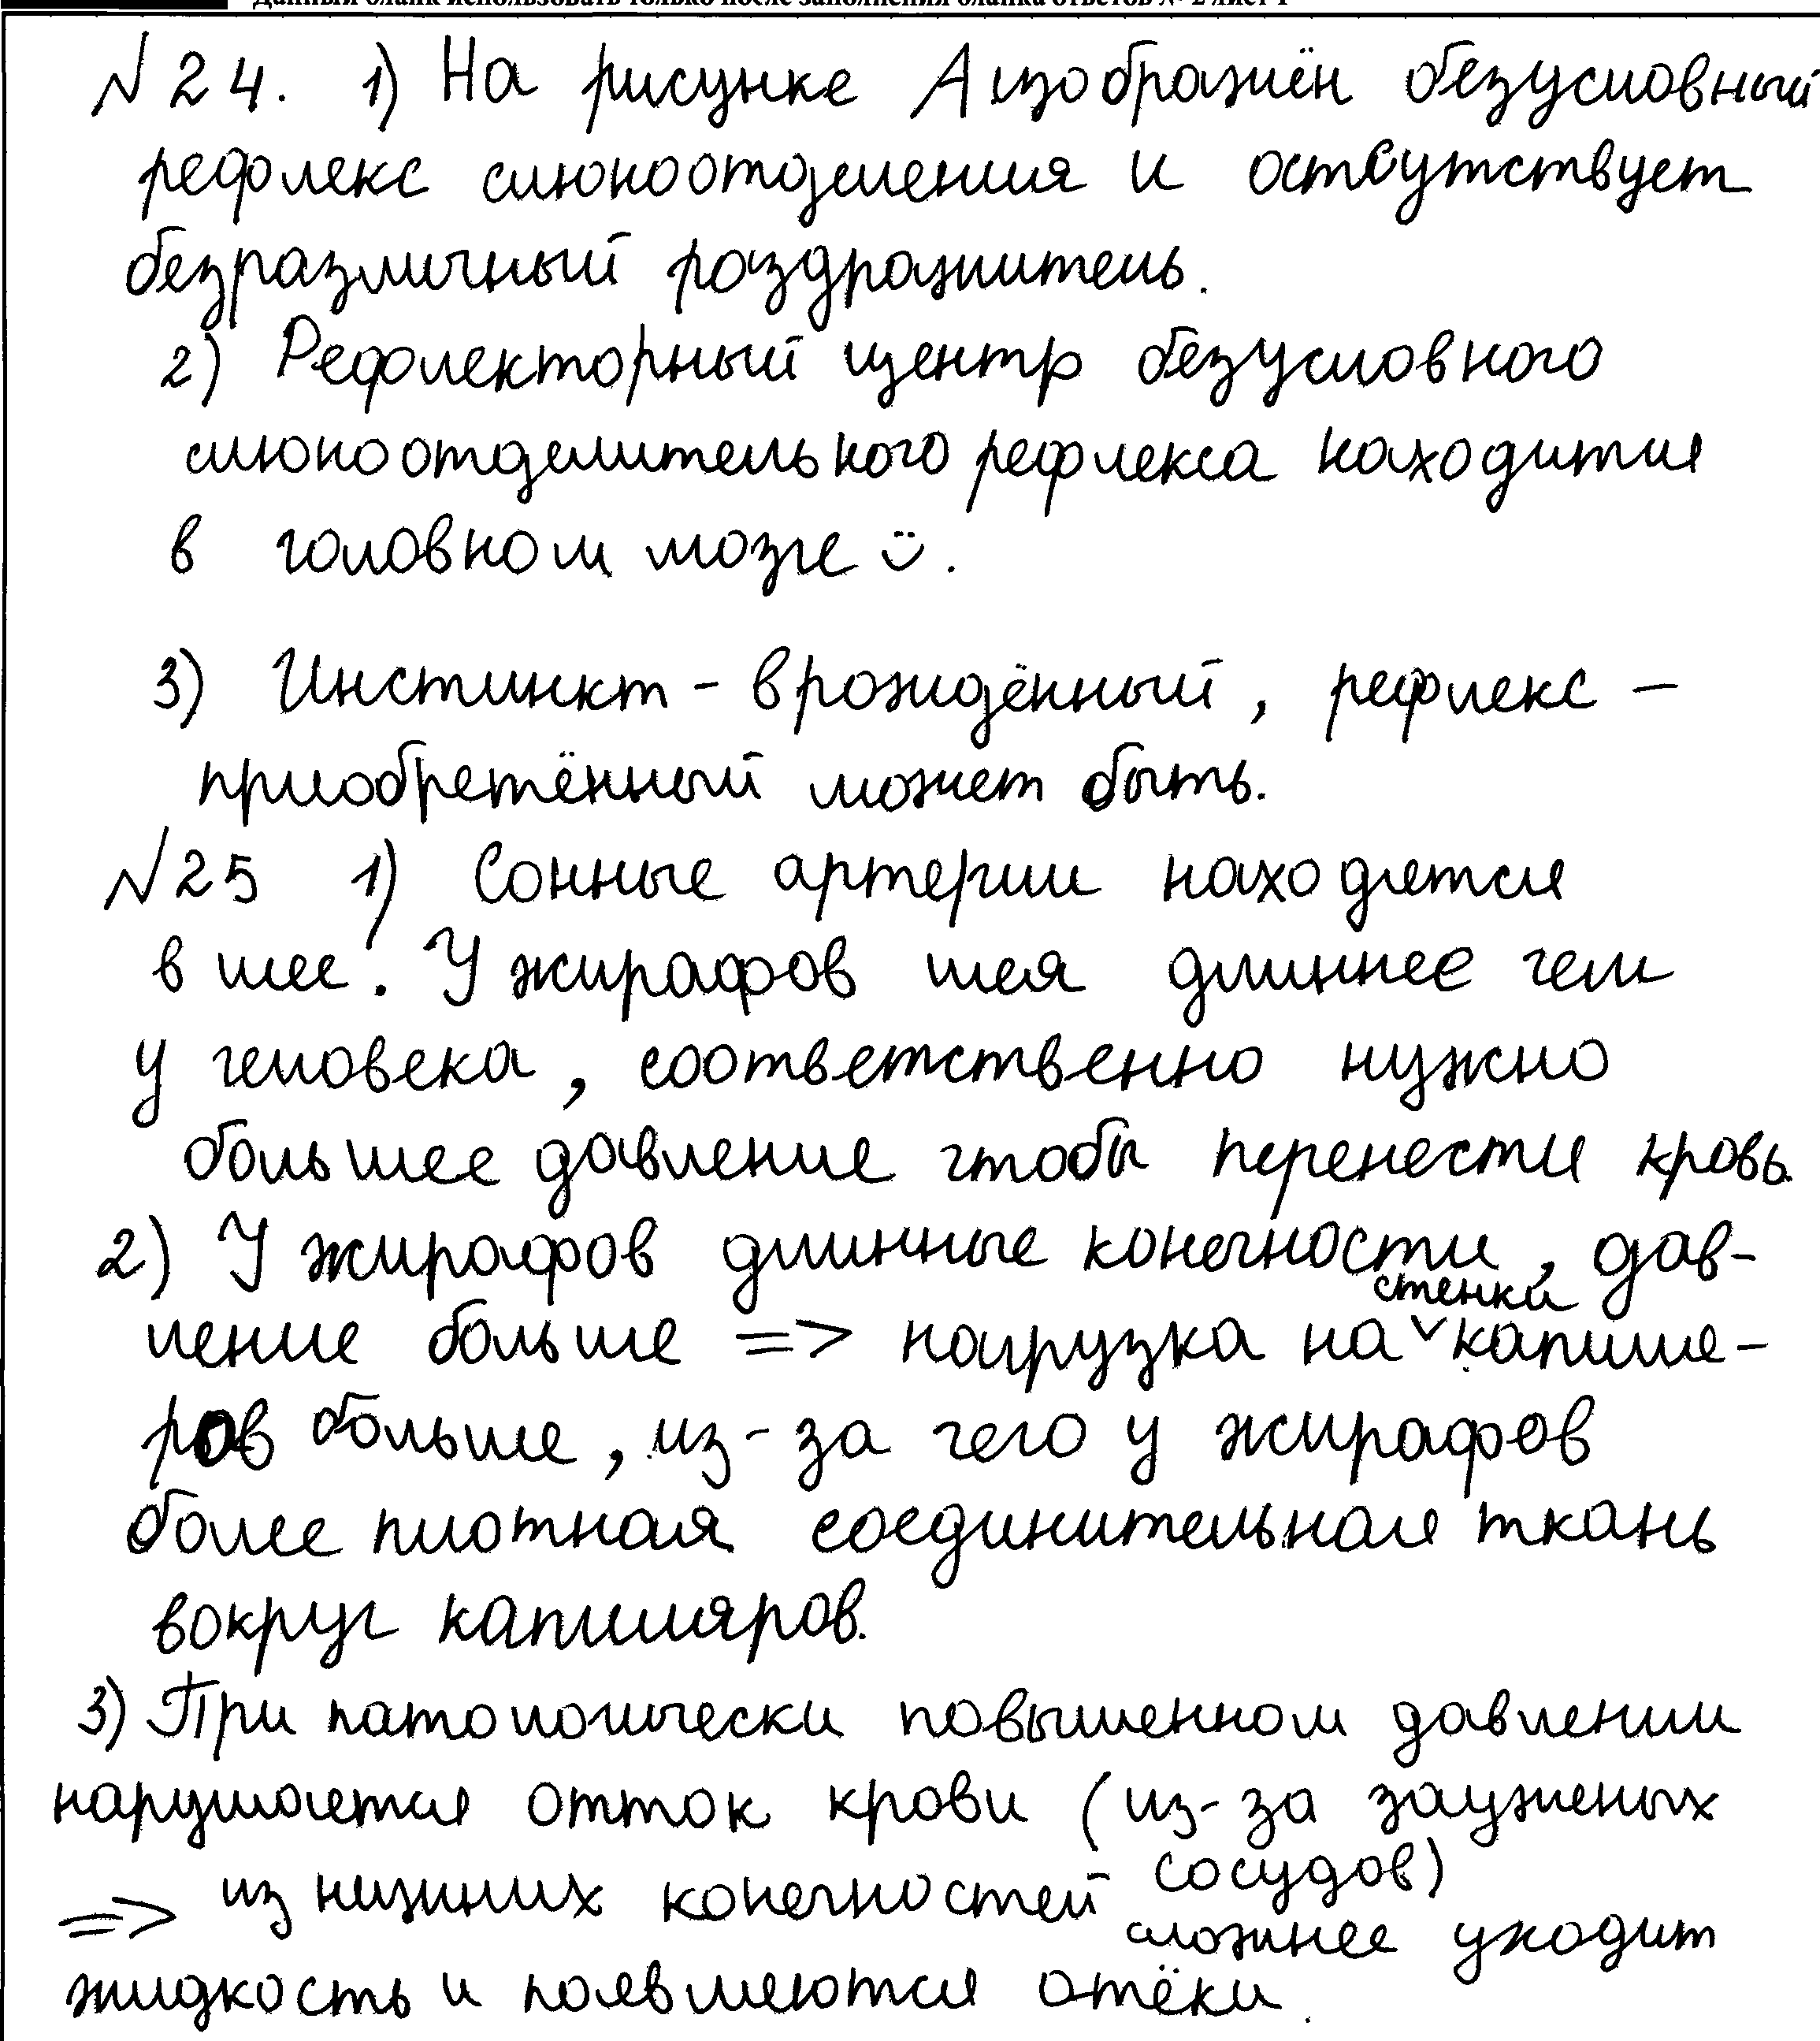 Данный бланк использовать только после заполнения бланка ответов № 2 лист 1
№ 24. 1) На рисунке А изображён безусловный
рефлекс слюноотделения и остсутствует
безразличный раздражитель.
2) Рефлекторный центр безусловного
слюноотделительного рефлекса находится
в головном мозге ☺.
3) Инстинкт - врождённый, рефлекс –
приобретённый может быть.
№ 25 1) Сонные артерии находятся
в шее. У жирафов шея длиннее чем
у человека, соответственно нужно
большее давление чтобы перенести кровь.
2) У жирафов длинные конечности, дав-
стенки
ление больше => нагрузка на ˅ капиле-
ров больше, из-за чего у жирафов
более плотная соединительная ткань
вокруг капилляров.
3) При патологически повышенном давлении
нарушается отток крови (из-за зауженых
сосудов)
=> из нижних конечностей сложнее уходит
жидкость и появляются отёки.